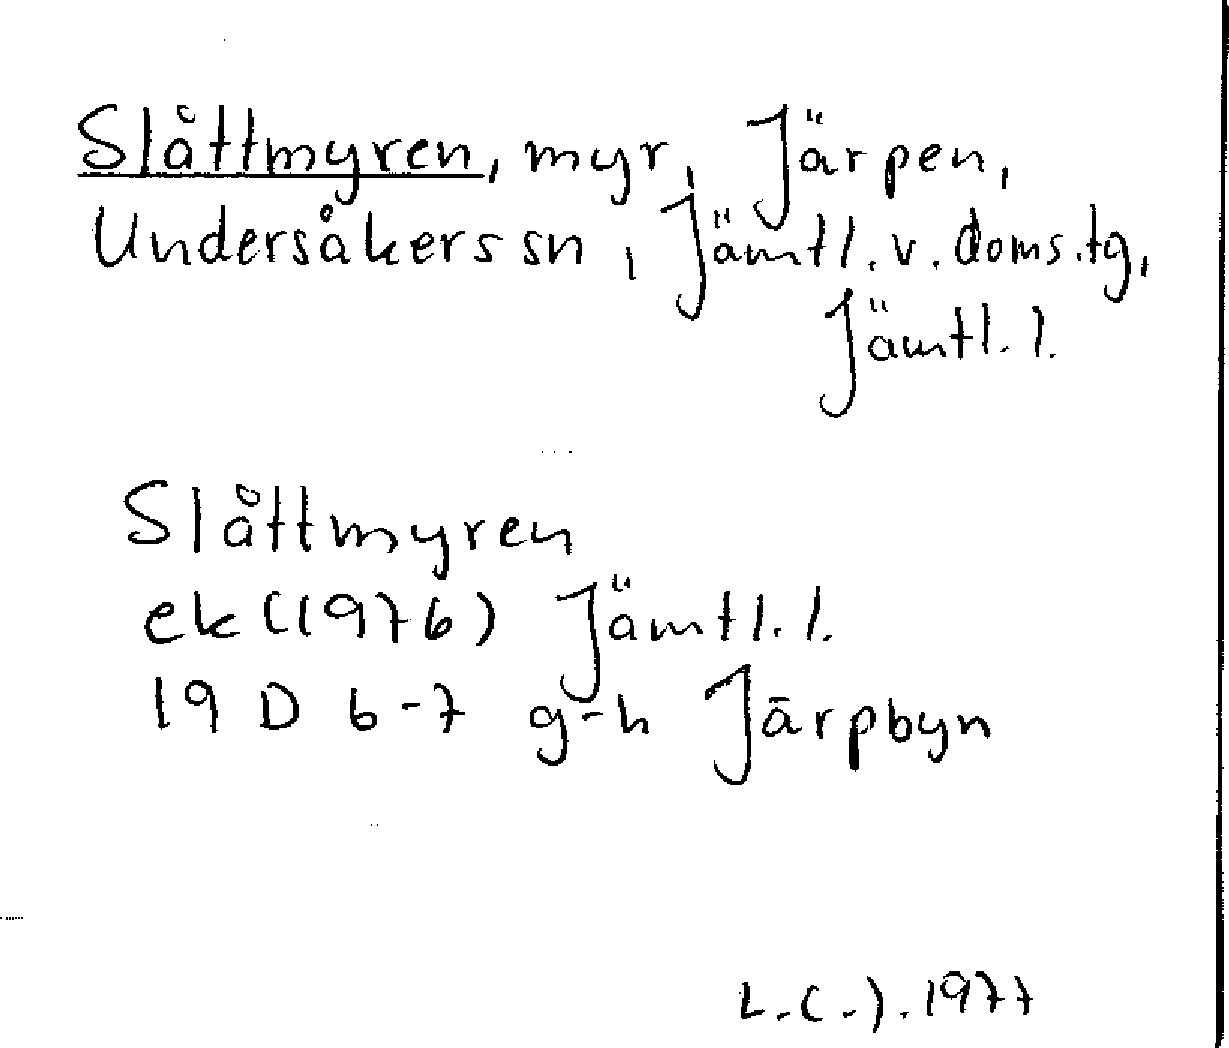 Slåttmyren, myr, Järpen,
Undersåkers sn, Jämtl. v. doms.tg,
Jämtl. l.
Slåttmyren
ek (1976) Jämtl. l.
19 D 6-7 g-h Järpbyn
L.C.J. 1977